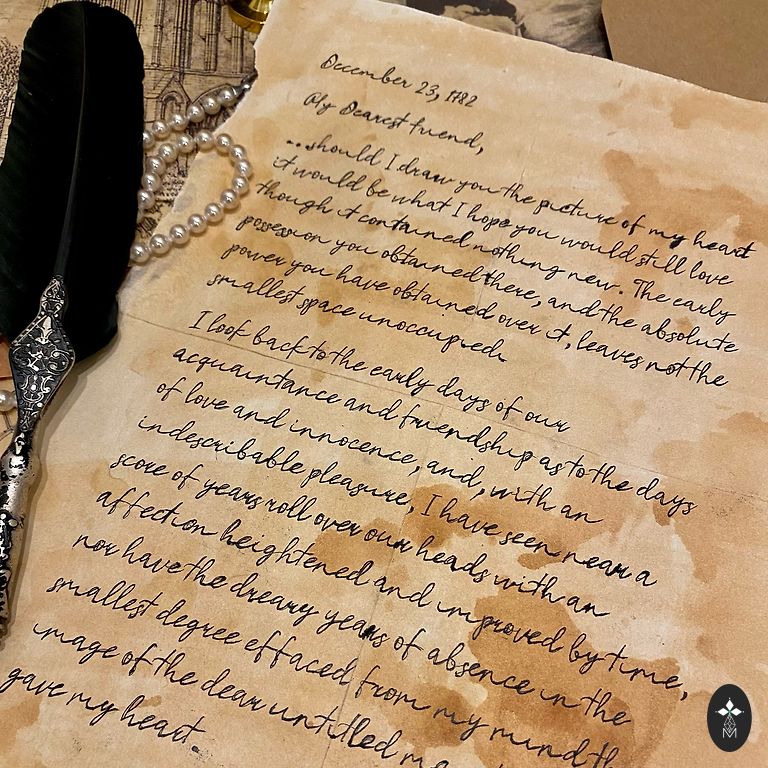 December 23, 1782
My Dearest friend,
...should I draw you the picture of my heart
it would be what I hope you would still love
though it contained nothing new. The early
possession you obtained there, and the absolute
power you have obtained over it, leaves not the
smallest space unoccupied.
I look back to the early days of our
acquaintance and friendship as to the days
of love and innocence, and, with an
indescribable pleasure, I have seen near a
score of years roll over our heads with an
affection heightened and improved by time,
nor have the dreary years of absence in the
smallest degree effaced from my mind th
image of the dear untitled m
gave my heart.
M